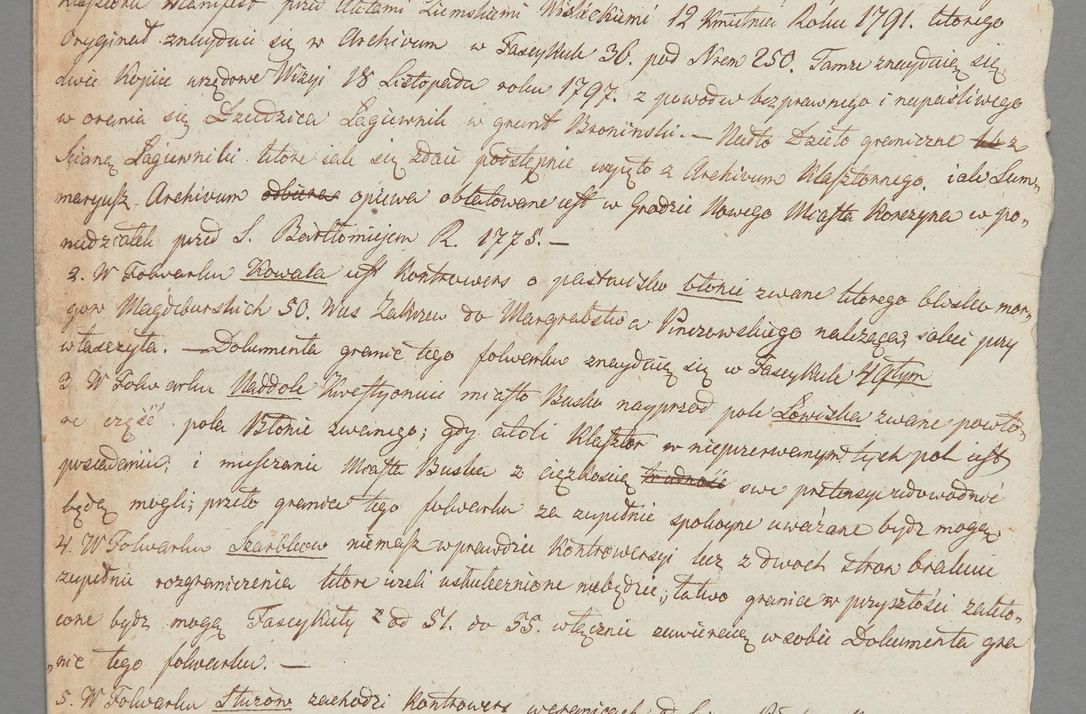 Manifest przed Aktami Ziemskiemi Wislickiemi 12 Kwietnia Roku 1791. ktorego
Oryginał znayduie się w Archivum w Fascykule 36. pod Nrem 250. Tamże znayduią się
dwie Kopiie urzędowe Wizyi 18 Listopada roku 1797. z powodu bezprawnego i napastliwego
w orania się Dziedzica Łagiewnik w grunt Broninski. — Nadto Dzieło graniczne z
scianą Łagiewniki ktore iak się zdaie podstępnie wyięto z Archivum Klasztornego, iak Sum-
maryusz Archivum odbiera opiewa oblatowane iest w Grodzie Nowego Miasta Korczyna w po-
niedziałek przed S. Bartłomiejem R. 1778. —
2. W Folwarku Kowala iest Kontrowers o pastwisko błonie zwane ktorego blisko mor-
gow Magdeburskich 50. Wies Zakrzew do Margrabstwa Pinczowskiego należąca, sobie przy
właszczyła. — Dokumenta granic tego folwarku znayduią się w Fascykule 49tym
3. W Folwarku Naddole Kwestyonuie miasto Busko nayprzod pole Łowiska zwane powto-
re część pola Błonie zwanego; gdy atoli Klasztor w nieprzerwanym tych pol iest
posiadaniu; i mieszczanie Miasta Buska z ciężkością trudność swe pretensye udowodnić
będą mogli; przeto granice tego folwarku za zupełnie spokoyne uważane bydź mogą
4. W Folwarku Szarbkow niemasz wprawdzie Kontrowersyi lecz z dwoch stron brakuie
zupełnie rozgraniczenia ktore ieżeli uskutecznione niebędzie, łatwo granice w przyszłości zakło-
cone bydź mogą Fascykuły od 51. do 55. włącznie zawieraią w sobie Dokumenta gra
„nic tego folwarku. —
5. W Folwarku Sturów zachodzi Kontrowers w granicach